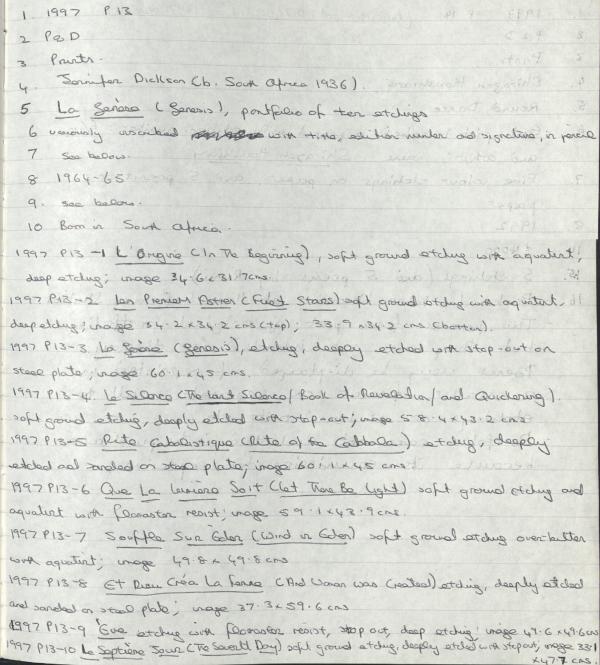 1 1997 P13
2 P&D
3 Prints.
4. Jennifer Dickson (b. South Africa 1936).
5 La Genèse (Genesis), portfolio of ten etchings
6 variously inscribed with title, edition number and signature, in pencil
7 see below.
8 1964-65
9. see below.
10 Born in South Africa.
1997 P13-1 L'Origine (In The Beginning), soft ground etching with aquatint,
deep etching; image 34.6 x 31.7cms
1997 P13-2 Les Premiers Astres (First Stars) soft ground etching with aquatint,
deep etching; image 34.2 x 34.2 cms (top); 33.9 x 34.2 cms (bottom).
1997 P13-3 La Genèse (Genesis), etching, deeply etched with stop-out on
steel plate; image 60.1 x 45 cms.
1997 P13-4. Le Silence (The Last Silence/Book of Revelation/and Quickening).
soft ground etching, deeply etched with stop-out; image 58.4 x 43.2 cms
1997 P13-5 Rite Cabalistique (Rite of the Cabbala) etching, deeply
etched and sanded on steel plate; image 60.1 x 45 cms
1997 P13-6 Que La Lumière Soit (Let There Be Light) soft ground etching and
aquatint with resist; image 59.1 x 43.9cms
1997 P13-7 Souffle Sur Eden (Wind in Eden) soft ground etching over-bitten
with aquatint; image 49.8 x 49.8 cms
1997 P13-8 Et Dieu Créa La Femme (And Woman was Created) etching, deeply etched
and sanded on steel plate; image 37.3 x 59.6 cms
1997 P13-9 Eve etching with resist, stop out, deep etching; image 49.6 x 49.6cms
1997 P13-10 Le Septième Jour (The Seventh Day) soft ground etching, deeply etched with stop out, image 33.1
x 47.7 cms